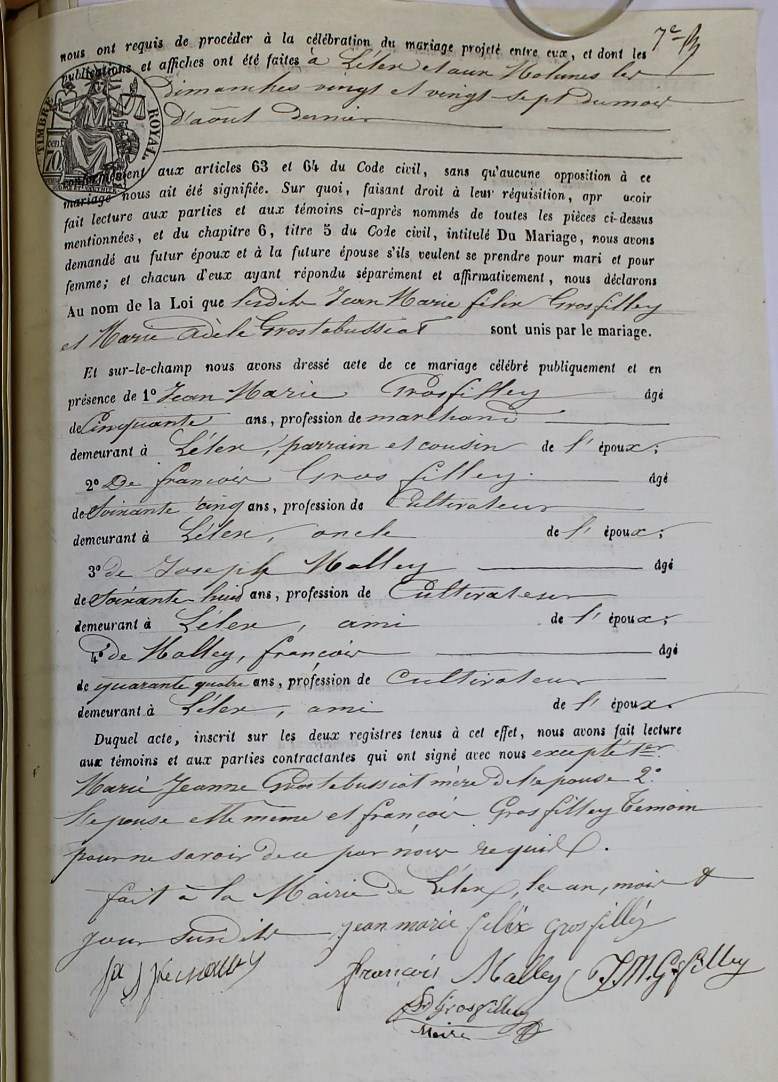 7e
nous ont requis de procéder à la célébration du mariage projeté entre eux, et dont les
publications et affiches ont été faites à Lélex et aux Molunes les
Dimanches vingt et vingt-sept du mois
d'août dernier
TIMBRE ROYAL
70
conformément aux articles 63 et 64 du Code civil, sans qu'aucune opposition à ce
mariage nous ait été signifiée. Sur quoi, faisant droit à leur réquisition, apr avoir
fait lecture aux parties et aux témoins ci-après nommés de toutes les pièces ci-dessus
mentionnées, et du chapitre 6, titre 5 du Code civil, intitulé Du Mariage, nous avons
demandé au futur époux et à la future épouse s'ils veulent se prendre pour mari et pour
femme; et chacun d'eux ayant répondu séparément et affirmativement, nous déclarons
Au nom de la Loi que lesdits Jean Marie félix Grosfilley
et Marie Adèle Grostabussiat sont unis par le mariage.
Et sur-le-champ nous avons dressé acte de ce mariage célébré publiquement et en
présence de 1º Jean Marie Grosfilley âgé
de Cinquante ans, profession de marchand
demeurant à Lélex, parrain et cousin de l'époux;
2º De françois Gros filley âgé
de Soixante cinq ans, profession de Cultivateur
demeurant à Lélex, oncle de l'époux;
3º de Joseph Malley âgé
de Soixante-huit ans, profession de Cultivateur
demeurant à Lélex, ami de l'époux;
4º de Malley, françois âgé
de quarante quatre ans, profession de Cultivateur
demeurant à Lélex, ami de l'époux.
Duquel acte, inscrit sur les deux registres tenus à cet effet, nous avons fait lecture
aux témoins et aux parties contractantes qui ont signé avec nous excepté 1er
Marie Jeanne Grostabussiat mère de l'epouse 2º
l'epouse elle même et françois Grosfilley Temoin
pour ne savoir de ce par nous requis.
fait à la Mairie de Lélex, les an, mois &
jour susdits jean marie felix grosfilley
françois Malley J.M. G. filley
Grosfilley
Maire